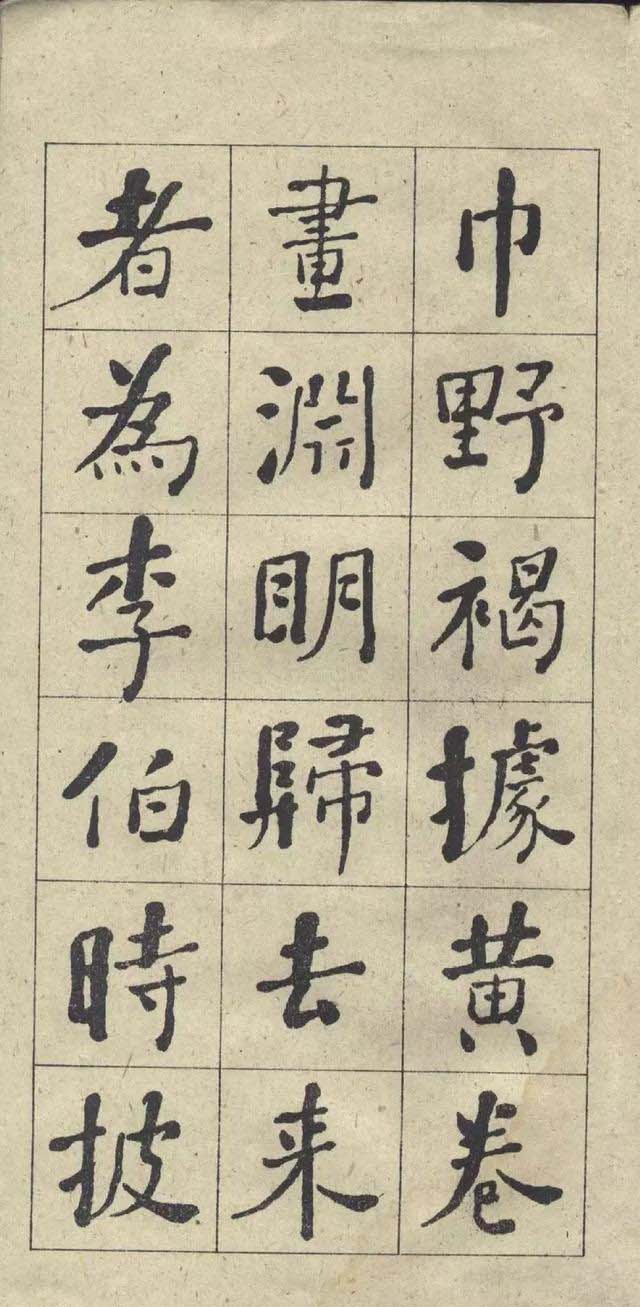 巾野褐據黄卷
畫淵明歸去来
者為李伯時披